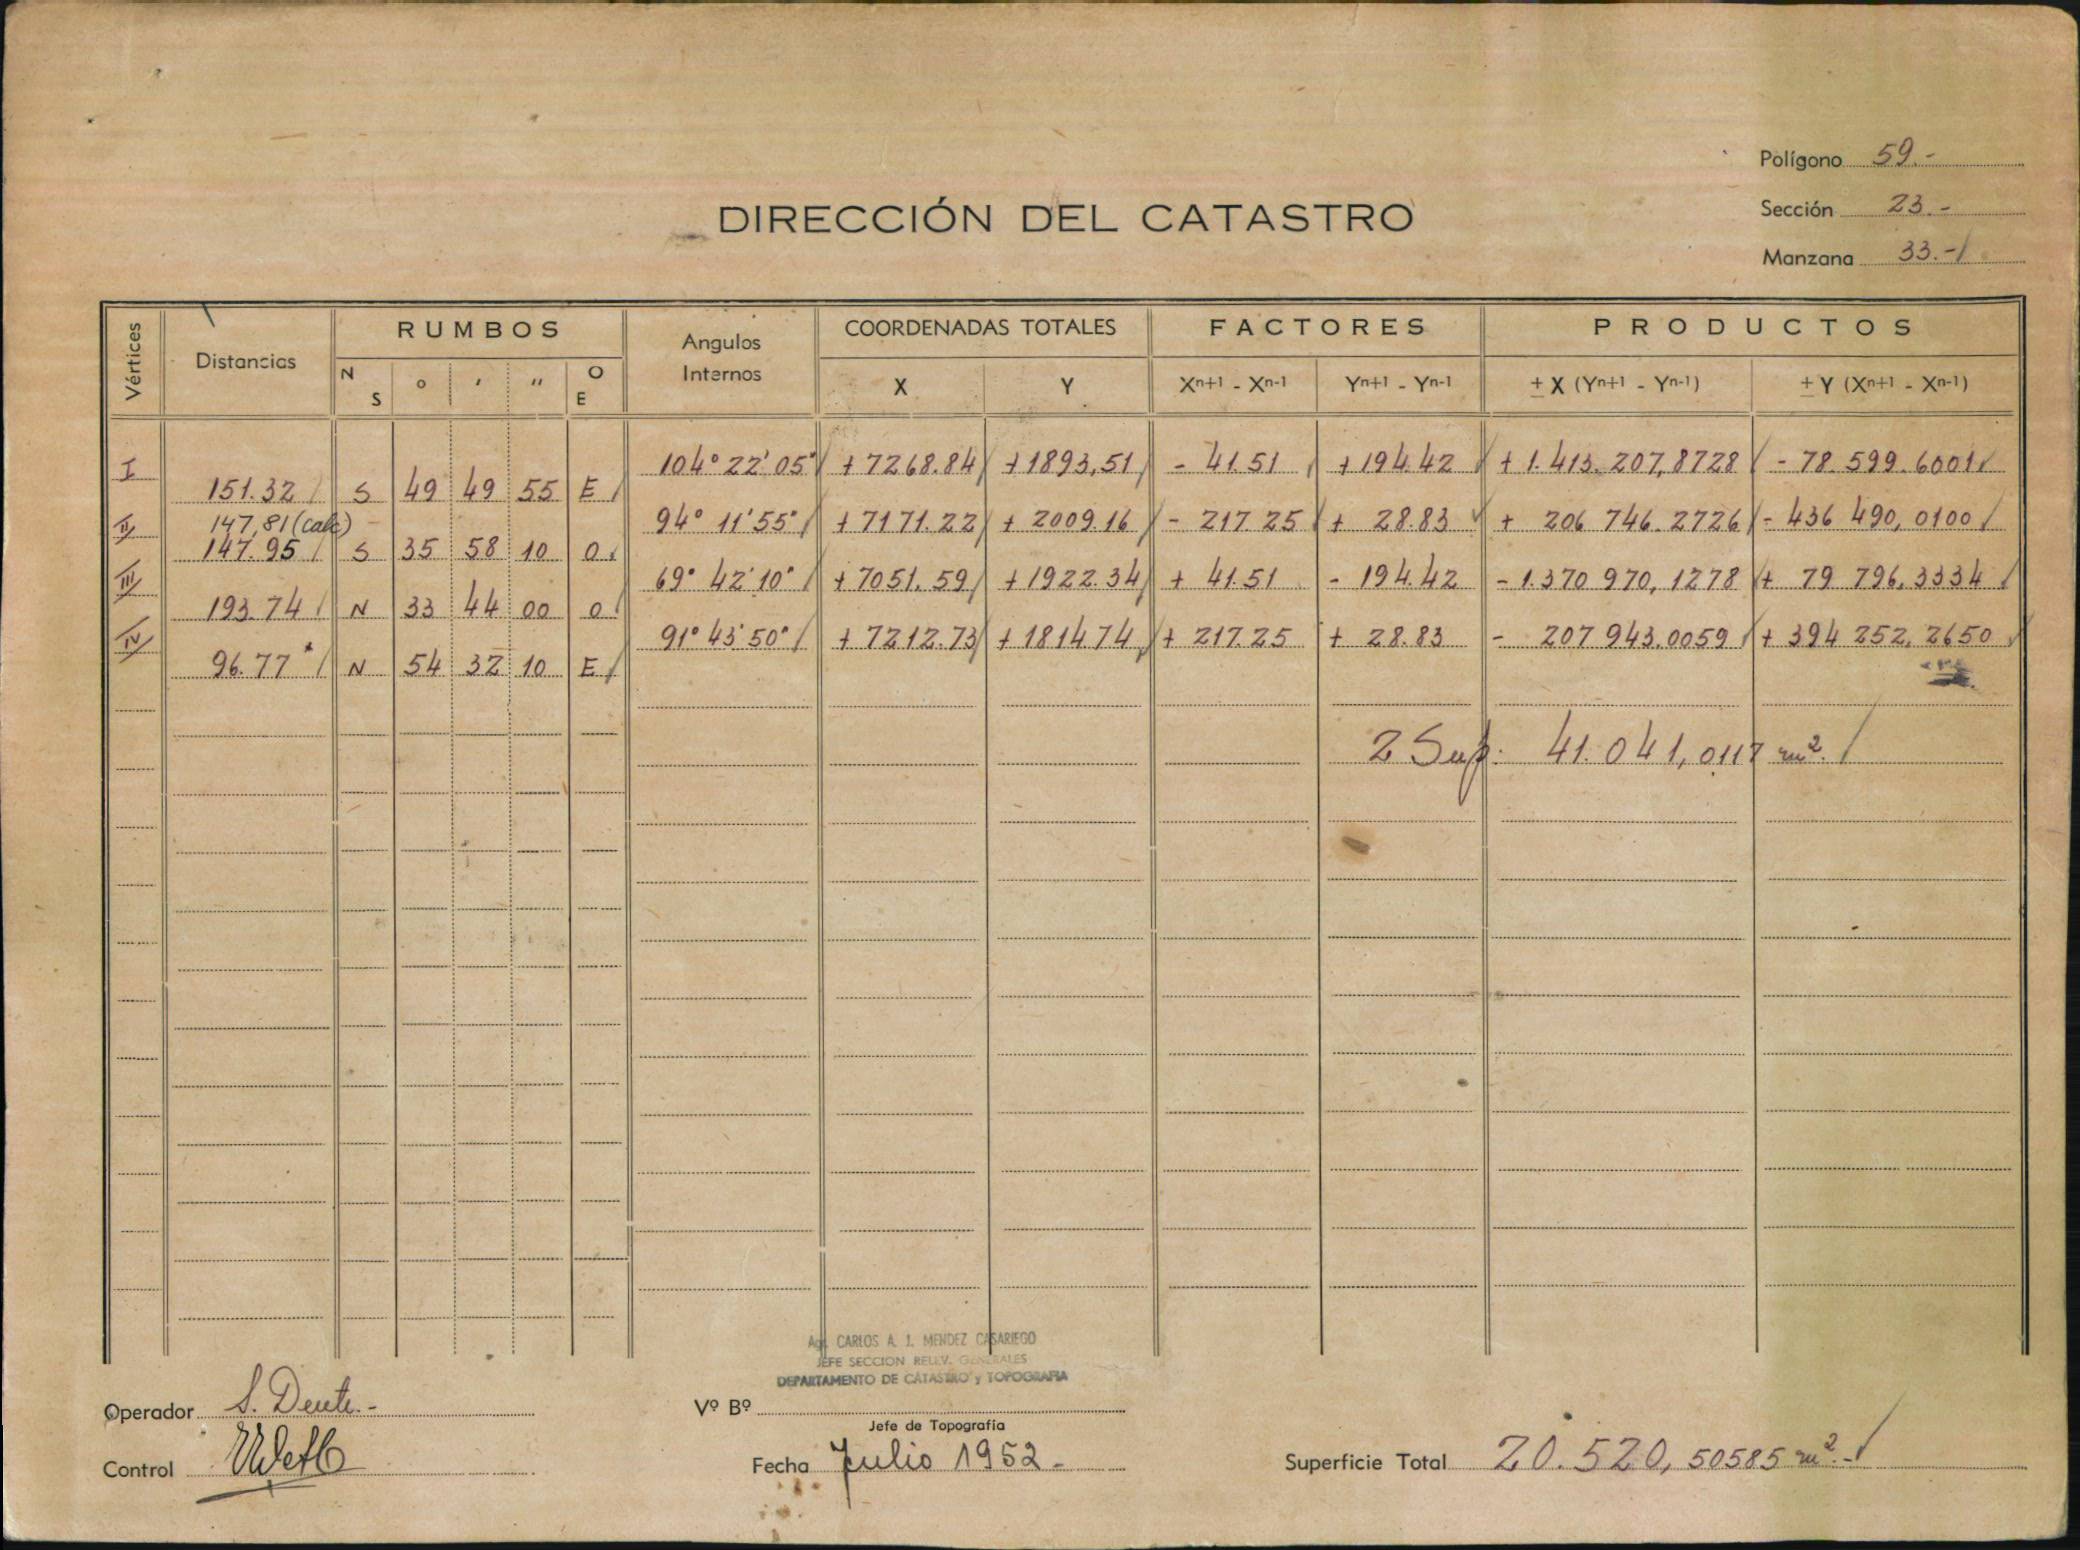 Polígono 59.-
Sección 23.-
Manzana 33.-
DIRECCIÓN DEL CATASTRO
Vértices Distancias RUMBOS Angulos Internos COORDENADAS TOTALES FACTORES PRODUCTOS
N S o ' " O E X Y Xn+1 - Xn-1 Yn+1 - Yn-1 ± X (Yn+1 - Yn-1) ± Y (Xn+1 - Xn-1)
I 104° 22' 05" +7268.84 +1893,51 - 41.51 +194.42 +1.413.207,8728 - 78.599.6001
151.32 S 49 49 55 E
II 147,81 (calc) 94° 11' 55" +7171.22 + 2009.16 - 217.25 + 28.83 + 206 746.2726 - 436 490,0100
147.95 S 35 58 10 O
III 69° 42' 10" +7051.59 +1922.34 + 41.51 - 194.42 - 1.370 970,1278 + 79 796,3334
193.74 N 33 44 00 O
IV 91° 43' 50" + 7212.73 +1814.74 + 217.25 + 28.83 - 207 943.0059 + 394 252,2650
96.77 N 54 32 10 E
2 Sup. 41.041,0117 m2.
Agr. CARLOS A. J. MENDEZ CASARIEGO
JEFE SECCION RELEV. GENERALES
DEPARTAMENTO DE CATASTRO y TOPOGRAFIA
Operador S. Dente.-
Vº Bº
Jefe de Topografía
Control
Fecha Julio 1952-
Superficie Total 20.520,50585 m2.-